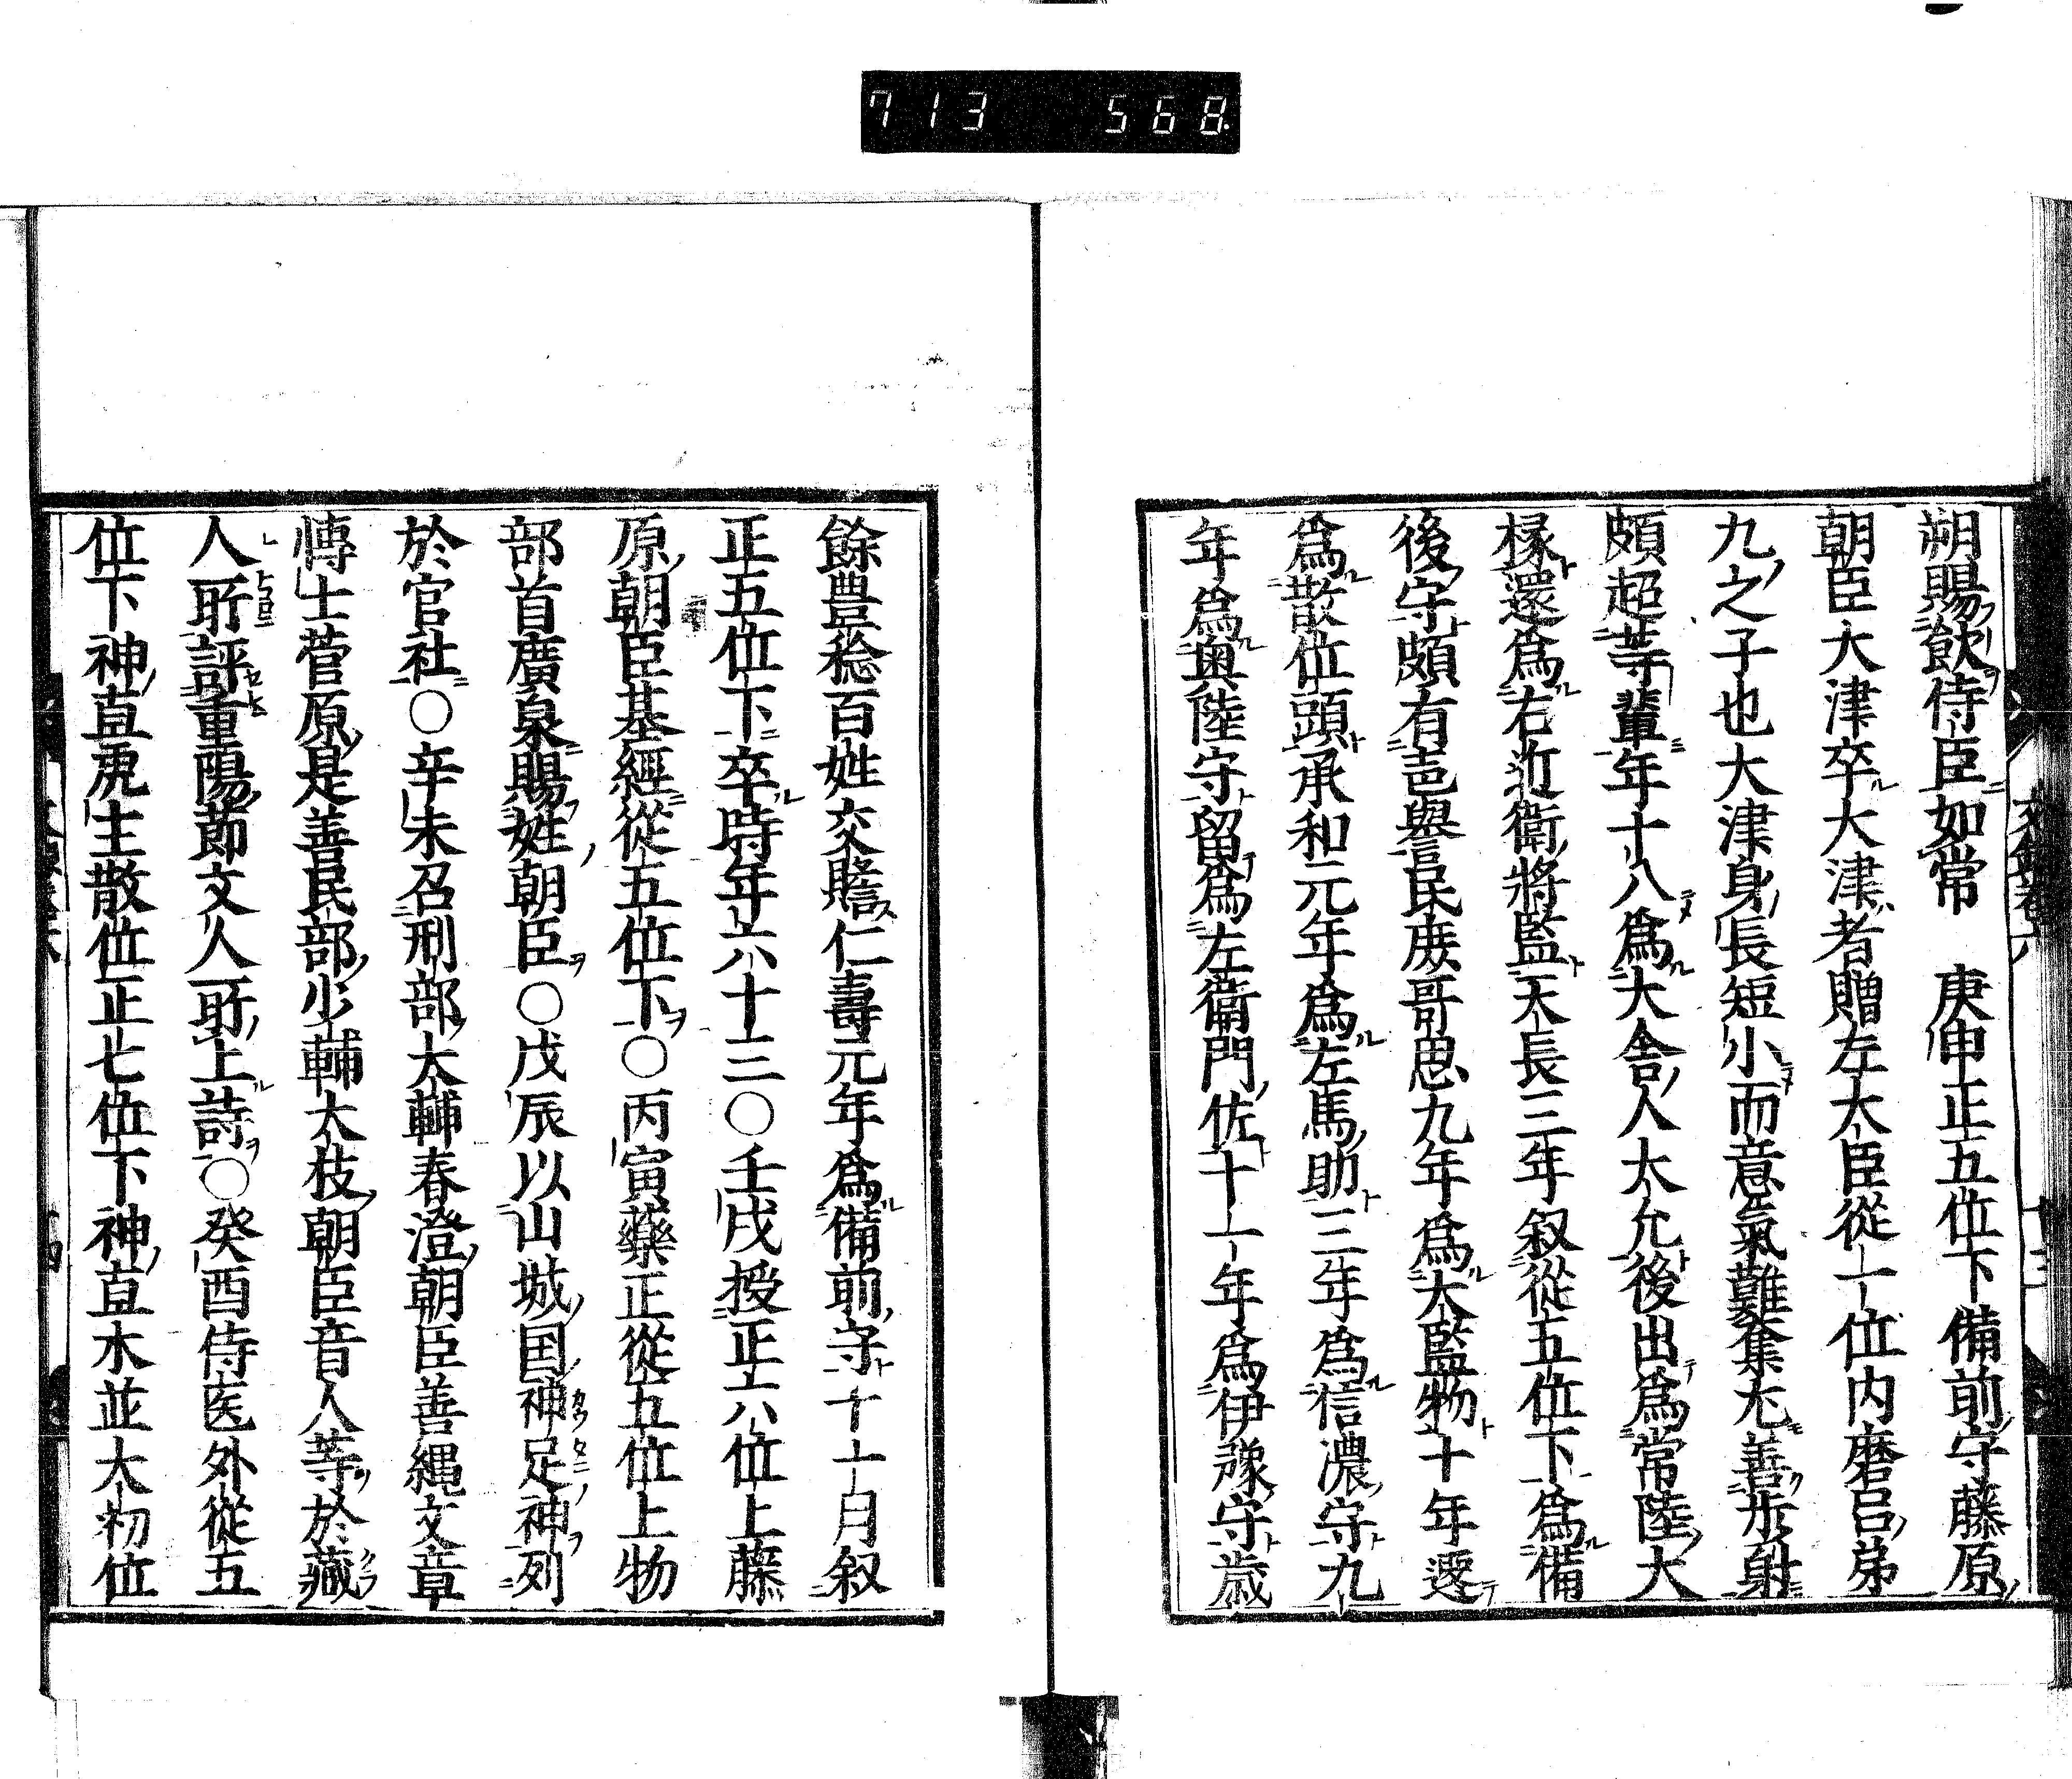 713 568
朔賜飲侍臣如常　庚申正五位下備前守藤原
朝臣大津卒大津者贈左大臣從一位内麿第
九之子也大津身長短小而意氣難奪尤善歩射
頗超等輩年十八爲大舎人大允後出爲常陸大
掾還爲右近衛將監天長三年叙從五位下爲備
後守頗有声譽民庶哥思九年爲大監物十年遷
爲散位頭承和元年爲左馬助三年爲信濃守九
年爲奥陸守留爲左衛門佐十一年爲伊豫守歳
餘豊稔百姓交贍仁壽元年爲備前守十一月叙
正五位下卒時年六十三〇壬戌授正六位上藤
原朝臣基經從五位下〇丙寅藥正從五位上物
部首廣泉賜姓朝臣〇戊辰以山城国神足神列
於官社〇辛未召刑部大輔春澄朝臣善縄文章
慱士菅原是善民部少輔大枝朝臣音人等於藏
人所評重陽節文人所上詩〇癸酉侍医外從五
位下神直虎主散位正七位下神直木並大初位